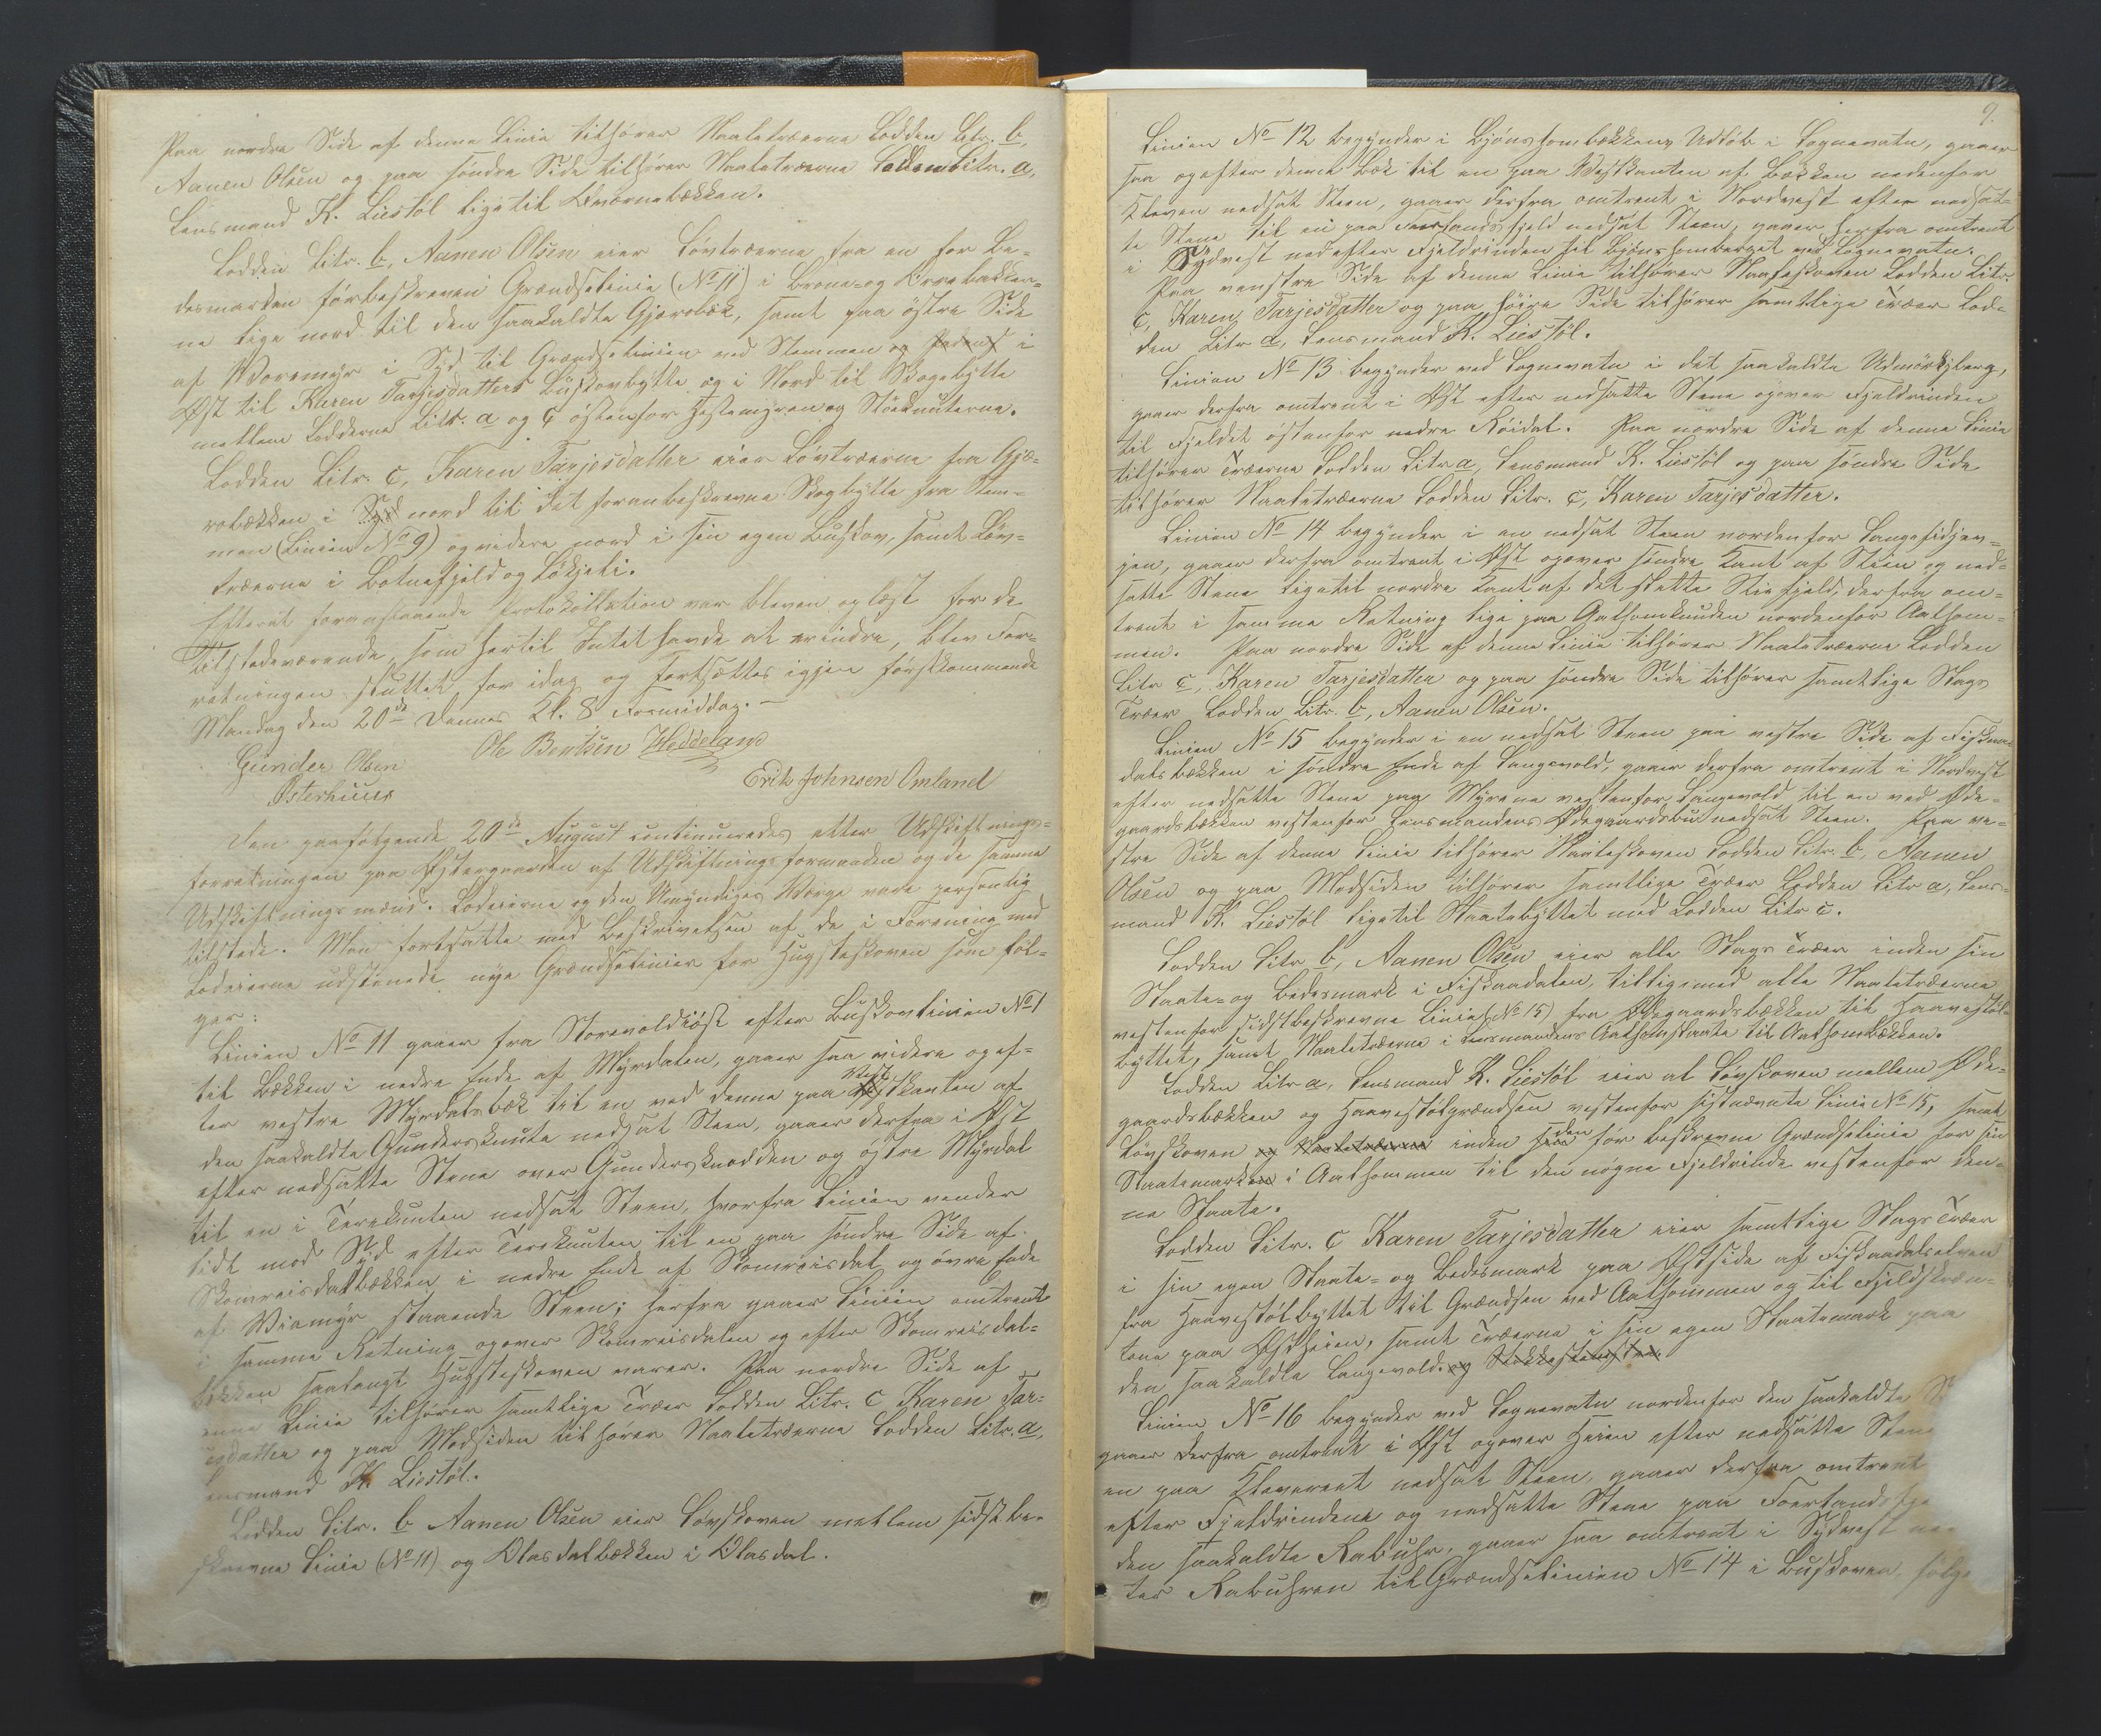 Paa nordre Side af denne Linie tilhører Naaletræerne Lodden Litr. b,
Aanen Olsen og paa søndre Side tilhører Naaletræerne Lodden Litr. a,
Lensmand K. Liestøl lige til Kværnebækken.
Lodden Litr. b, Aanen Olsen eier Løvtræerne fra en for Be-
desmarken førbeskreven Grændselinie (No 11) i Brone- og Orrebakken-
ne lige nord til den saakaldte Gjærobæk, samt paa østre Side
af Voremyr i Syd til Grændselinien ved Stemmen og i
Øst til Karen Tarjesdatters Buskovbytte og i Nord til Skogebytte
mellem Lodderne Litr. a og c østenfor Hestemyren og Stöaknuterne.
Lodden Litr. c, Karen Tarjesdatter eier Løvtræerne fra Gjæ-
robækken i Syd nord til det foranbeskrevne Skogbytte fra Stem-
men (Linien No 9) og videre nord i sin egen Buskov, samt Løv-
træerne i Botnefjeld og Løkjeli.
Efterat foranstaaende Protokollation var bleven oplæst for de
Tilstedeværende, som hertil Intet havde at erindre, blev For-
retningen sluttet for idag og fortsættes igjen førstkommende
Mandag den 20de Dennes Kl. 8 Formiddag. —
Gunder Olsen Ole Bentsen Heddeland
Østerhuus Erik Johnsen Omland
Den paafølgende 20de August continueredes atter Udskiftnings-
forretningen paa Østergaarden af Udskiftningsformanden og de samme
Udskiftningsmænd. Lodeierne og den Umyndiges Værge vare personlig
tilstede. Man fortsatte med Beskrivelsen af de i Forening med
Lodeierne udstenede nye Grændselinier for Hugsteskoven som føl-
ger:
Linien No 11 gaaer fra Storevoldiøst efter Buskovlinien No 1
til Bækken i nedre Ende af Myrdalen, gaaer saa videre opef-
ter vestre Myrdalsbæk til en ved denne paa Vestkanten af
den saakaldte Gundersknute nedsat Steen, gaaer derfra i Øst
efter nedsatte Stene over Gundersknodden og østre Myrdal
til en i Tereknuten nedsat Steen, hvorfra Linien vender
lidt mod Syd efter Tereknuten til en paa søndre Side af
Skomreisdalbækken i nedre Ende af Skomreisdal og øvre Ende
af Viamyr staaende Steen; herfra gaaer Linien omtrent
i samme Retning opover Skomreisdalen og efter Skomreisdal-
bækken saalangt Hugsteskoven varer. Paa nordre Side af
denne Linie tilhører samtlige Træer Lodden Litr. c Karen Tar-
jesdatter og paa Modsiden tilhører Naaletræerne Lodden Litr. a,
Lensmand K. Liestøl.
Lodden Litr. b Aanen Olsen eier Løvskoven mellem sidst be-
skrevne Linie (No 11) og Olasdalbækken i Olasdal.
9.
Linien No 12 begynder i Bjønshombækkens Udløb i Lognevatn, gaaer
saa opefter denne Bæk til en paa Vestkanten af Bækken nedenfor
Kleven nedsat Steen, gaaer derfra omtrent i Nordvest efter nedsat-
te Stene til en paa Foerlandsfjeld nedsat Steen, gaaer herfra omtrent
i Sydvest nedefter Fjeldrinden til Bjønshomberget ved Lognevatn.
Paa venstre Side af denne Linie tilhører Naaleskoven Lodden Litr.
c, Karen Tarjesdatter og paa høire Side tilhører samtlige Træer Lod-
den Litr a, Lensmand K. Liestøl.
Linien No 13 begynder ved Lognevatn i det saakaldte Udmörkjberg,
gaaer derfra omtrent i Øst efter nedsatte Stene opover Fjeldrinden
til Fjeldet østenfor nedre Röidal. Paa nordre Side af denne Linie
tilhører Træerne Lodden Litr a, Lensmand K. Liestøl og paa søndre Side
tilhører Naaletræerne Lodden Litr. c, Karen Tarjesdatter.
Linien No 14 begynder i en nedsat Steen nordenfor Langesidjen-
jen, gaaer derfra omtrent i Øst opover søndre Kant af Stien og ned-
satte Stene lige til nordre Kant af det slette Stiefjeld, derfra om-
trent i samme Retning lige paa Aalhomknuden nordenfor Aalhom-
men. Paa nordre Side af denne Linie tilhører Naaletræerne Lodden
Litr c, Karen Tarjesdatter og paa søndre Side tilhører samtlige Slags
Træer Lodden Litr. b, Aanen Olsen.
Linien No 15 begynder i en nedsat Steen paa vestre Side af Fiskaa-
dalsbækken i søndre Ende af Langevold, gaaer derfra omtrent i Nordvest
efter nedsatte Stene paa Myrene vestenfor Langevold til en ved Øde-
gaardsbækken vestenfor Lensmandens Ødegaardsbu nedsat Steen. Paa ve-
stre Side af denne Linie tilhører Naaleskoven Lodden Litr. b, Aanen
Olsen og paa Modsiden tilhører samtlige Træer Lodden Litr a, Lens-
mand K. Liestøl lige til Skaatebyttet med Lodden Litr c.
Lodden Litr b, Aanen Olsen eier alle Slags Træer inden sin
Slaate- og Bedesmark i Fiskaadalen, tilligemed alle Naaletræerne
vestenfor sidstbeskrevne Linie (No 15) fra Ødegaardsbækken til Haavestøl-
byttet, samt Naaletræerne i Lensmandens Aalhomslaate til Aalhombækken.
Lodden Litr a, Lensmand K. Liestøl eier al Løvskoven mellem Øde-
gaardsbækken og Haavestølgrændsen vestenfor sistnævnte Linie No 15, samt
Løvskoven og Naaletræerne inden den før beskrevne Grændselinie for sin
Slaatemarken i Aalhommen til den nøgne Fjeldrinde vestenfor den-
ne Slaate.
Lodden Litr. c Karen Tarjesdatter eier samtlige Slags Træer
i sin egen Slaate- og Bedesmark paa Østside af Fiskaadalselven
fra Haavestølbyttet til Grændsen ved Aalhommen og til Fjeldskræn-
tene paa Østheien, samt Træerne i sin egen Slaatemark paa
den saakaldte Langevold. og
Linien No 16 begynder ved Lognevatn nordenfor den saakaldte
gaaer derfra omtrent i Øst opover Heien efter nedsatte Stene
en paa Kleverent nedsat Steen, gaaer derfra omtrent
efter Fjeldrindene og nedsatte Stene paa Foerlandsfje
den saakaldte Rabuhr, gaaer saa omtrent i Sydvest ne
ter Rabuhren til Grændselinien No 14 i Buskoven, følge